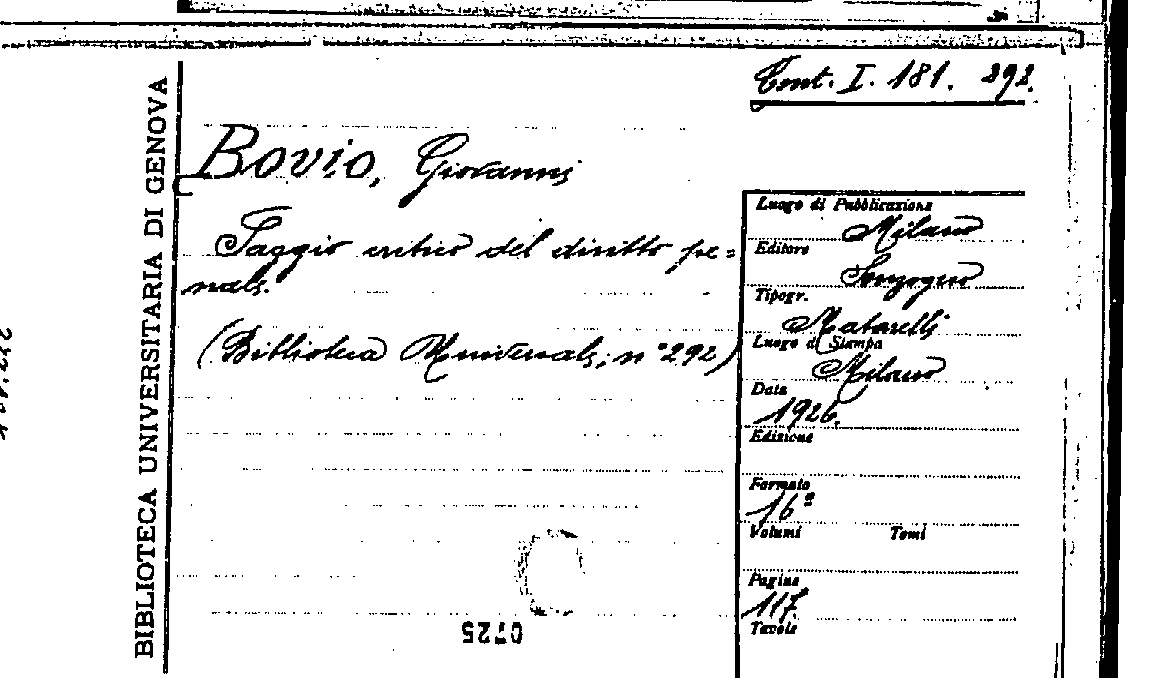 BIBLIOTECA UNIVERSITARIA DI GENOVA
Cont. I. 181. 292.
Bovio, Giovanni
Saggio critico del diritto pe=
nale.
(Biblioteca Universale, n° 292)
Luogo di Pubblicazione
Milano
Editore
Sonzogno
Tipogr.
Matarelli
Luogo di Stampa
Milano
Data
1926.
Edizione
Formato
16°
Volumi Tomi
Pagine
117.
Tavole
0725